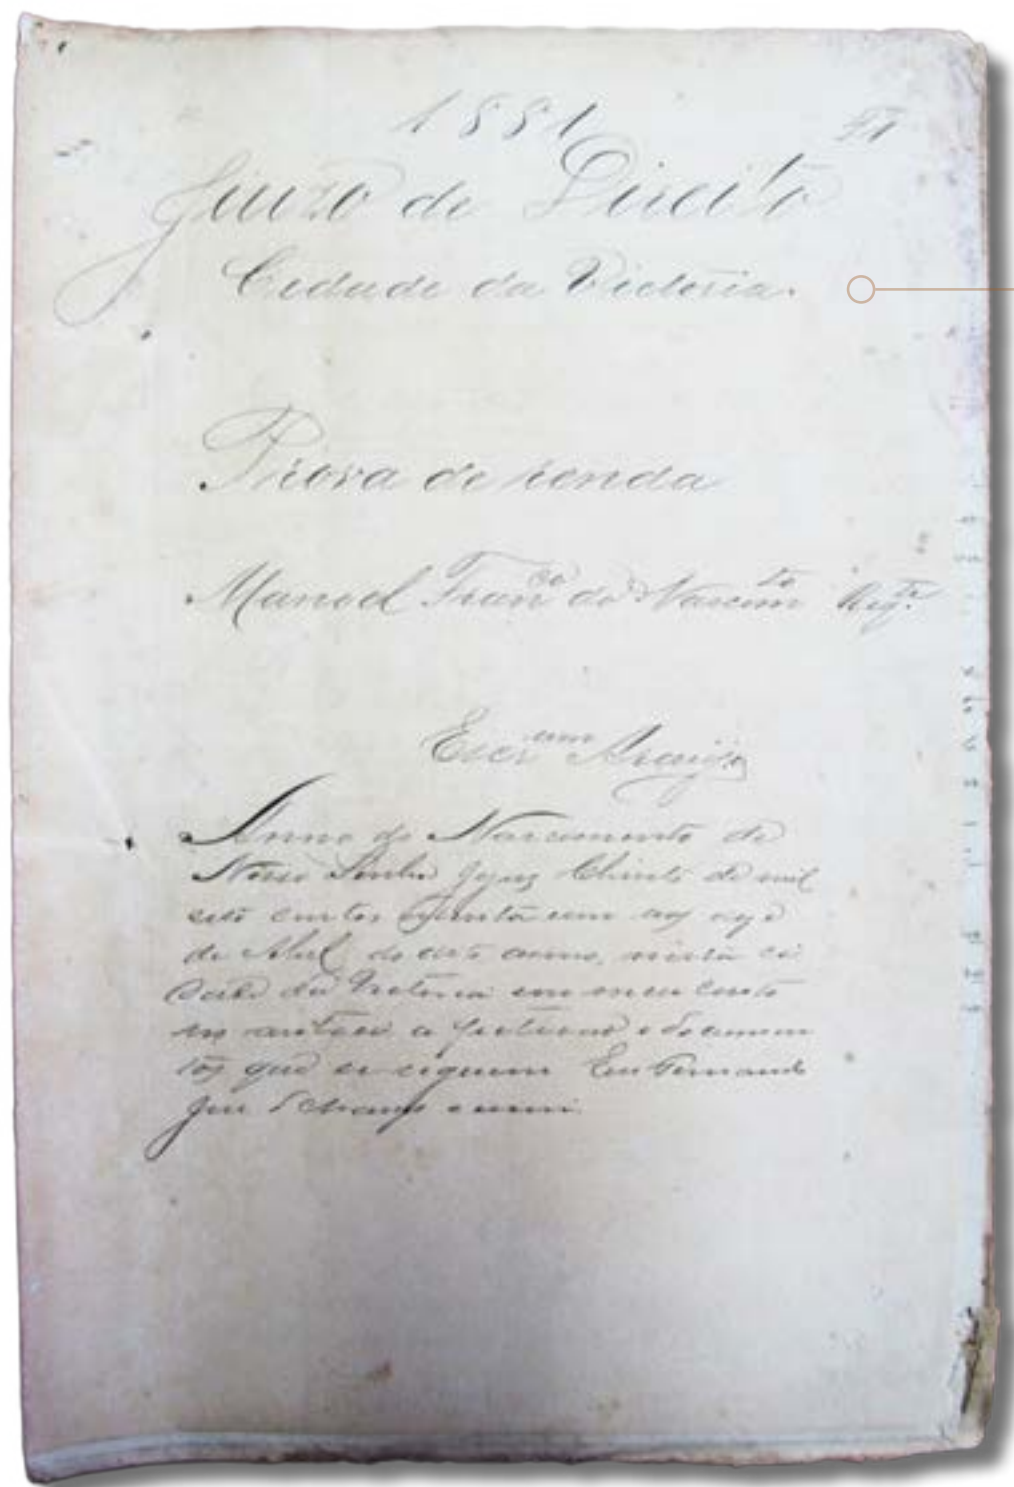 1881
Juizo de Direito
Cidade da Victoria.
Prova de renda
Manoel Fran.co do Nascim.to Req.te
Escr.am Araujo
Anno do Nascimento de
Nosso Senhor Jezus Christo de mil
oito centos oitenta e um aos
de Abril do dito anno, nesta ci
dade da Victoria em meu
autoei a petição e documen
tos que se seguem Eu